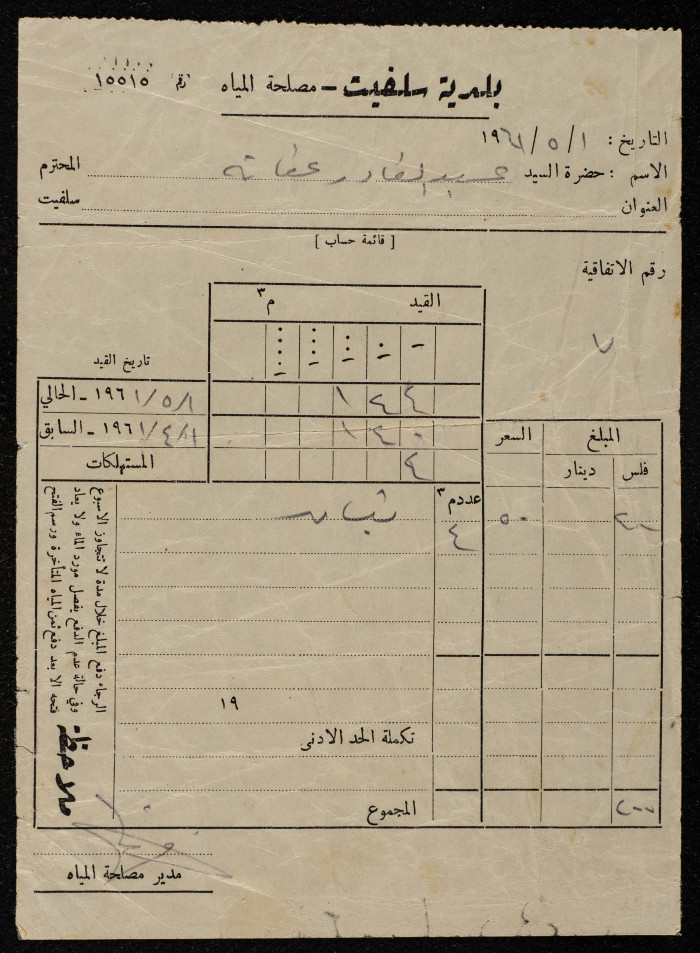 بلدية سلفيت - مصلحة المياه رقم ١٥٥١٥
التاريخ : ١ / ٥ / ١٩٦١
الاسم : حضرة السيد عبد القادر عفانه المحترم
العنوان سلفيت
[ قائمة حساب ]
رقم الاتفاقية
٧
القيد م٣
تاريخ القيد
١/٥/١ ١٩٦ - الحالي ١٤٤
١/٤/١ ١٩٦ - السابق ١٤٠
المستهلكات ٤
المبلغ السعر
فلس دينار
عدد م٣
٤ ٥٠ ٢٠٠
نيسان
١٩
تكملة الحد الادنى
المجموع ٢٠٠
ملاحظة
الرجاء دفع المبلغ خلال مدة لا تتجاوز الاسبوع
وفي حالة عدم الدفع يفصل مورد الماء ولا يعاد
فتحه الا بعد دفع ثمن المياه المتأخرة ورسم الفتح
مدير مصلحة المياه